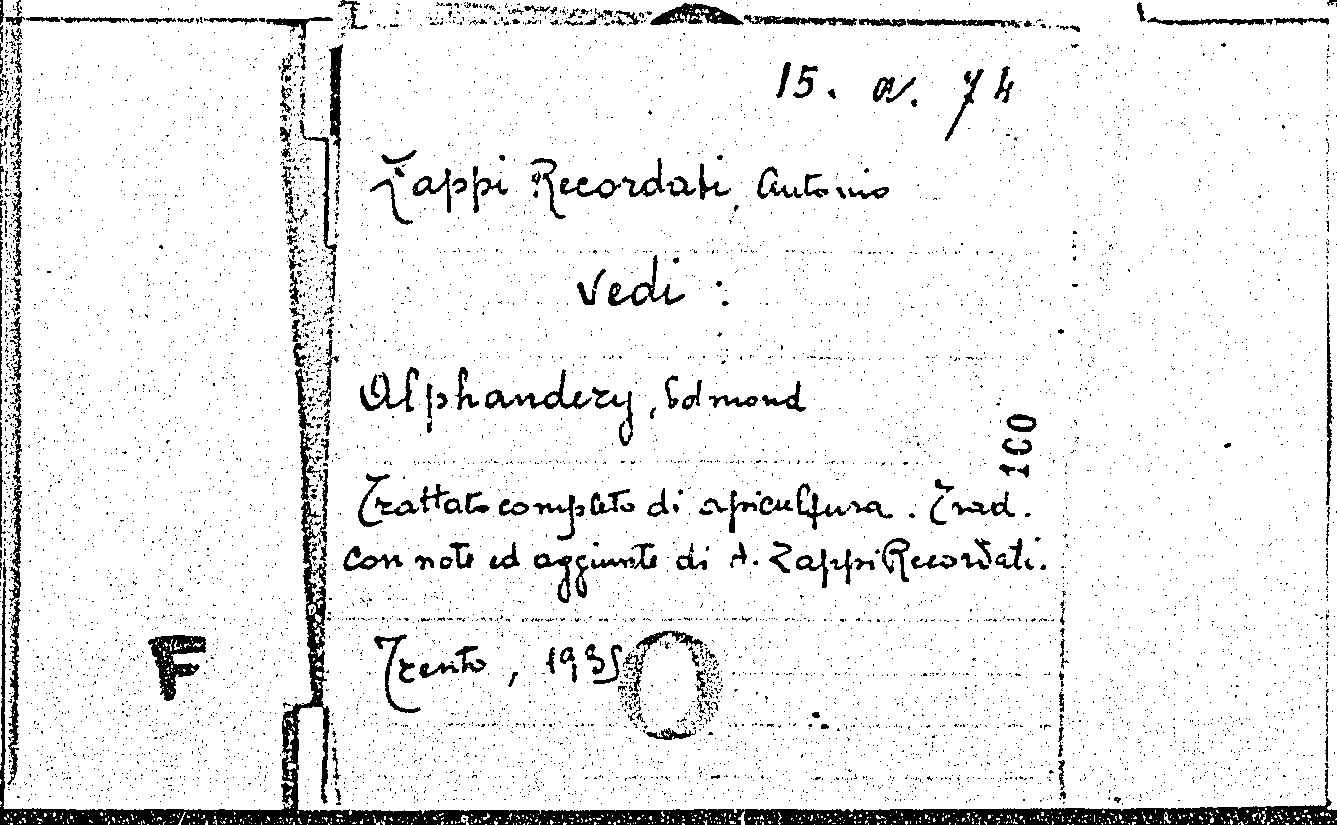 15. a. 74
Zappi Recordati, Antonio
Vedi :
Alphandery, Edmond
100
Trattato completo di apicultura. Trad.
con note ed aggiunte di A. Zappi Recordati.
F
Trento, 1935